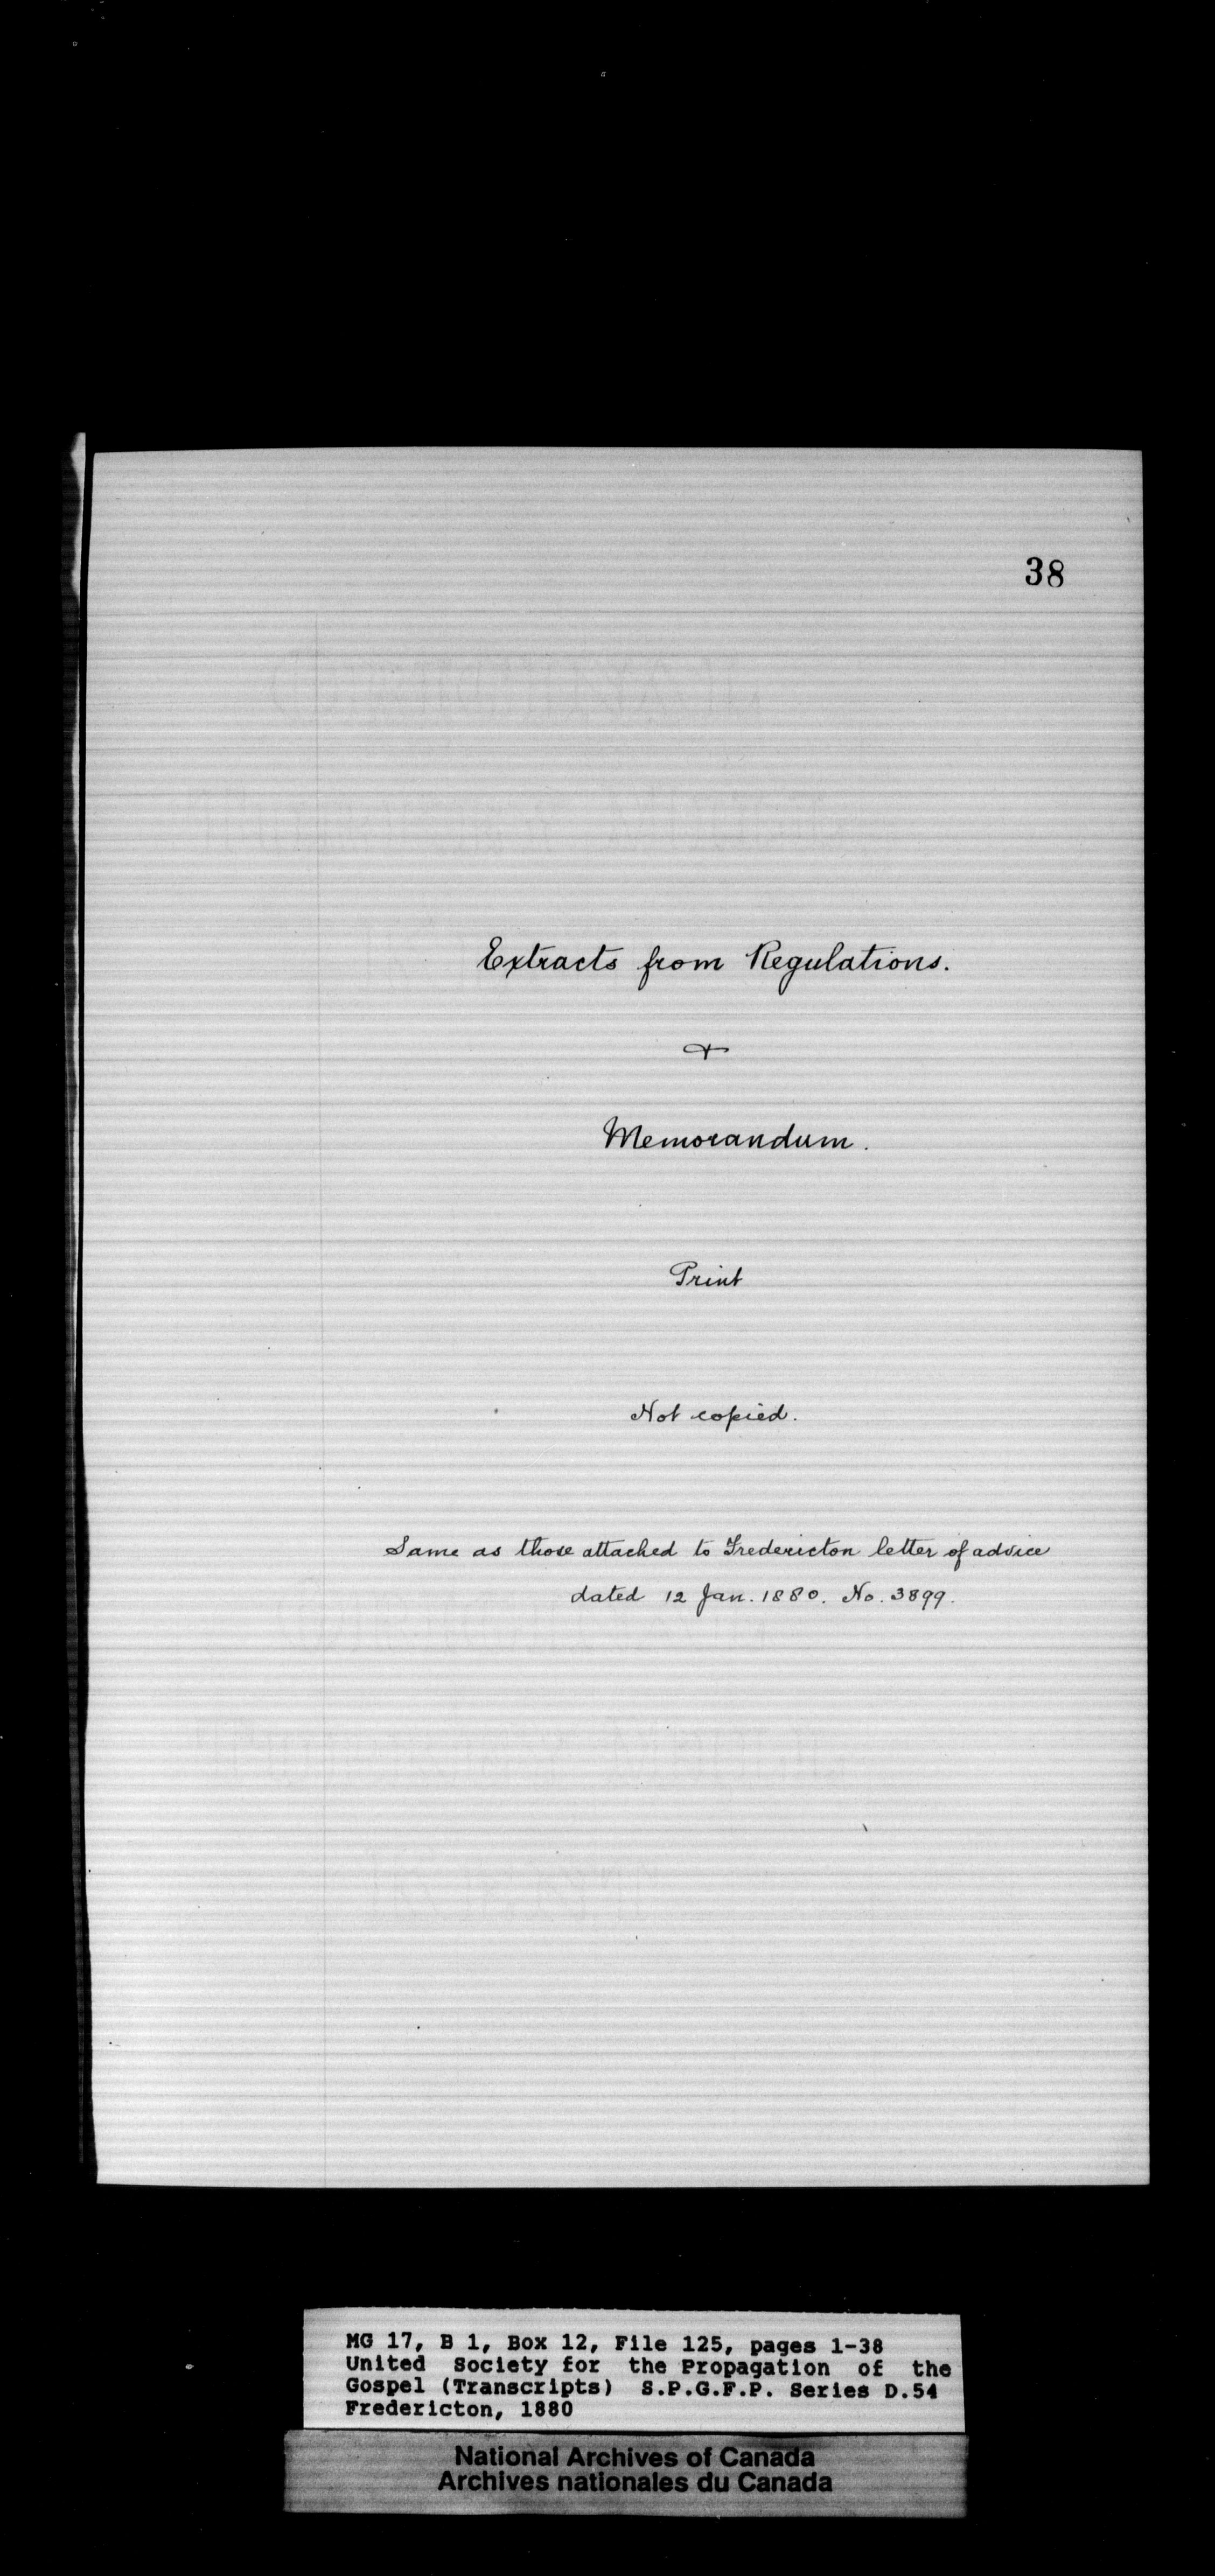 38
Extracts from Regulations.
&
Memorandum.
Print
Not copied.
Same as those attached to Fredericton letter of advice
dated 12 Jan. 1880. No. 3899.
MG 17, B 1, Box 12, File 125, pages 1-38
United Society for the Propagation of the
Gospel (Transcripts) S.P.G.F.P. Series D.54
Fredericton, 1880
National Archives of Canada
Archives nationales du Canada